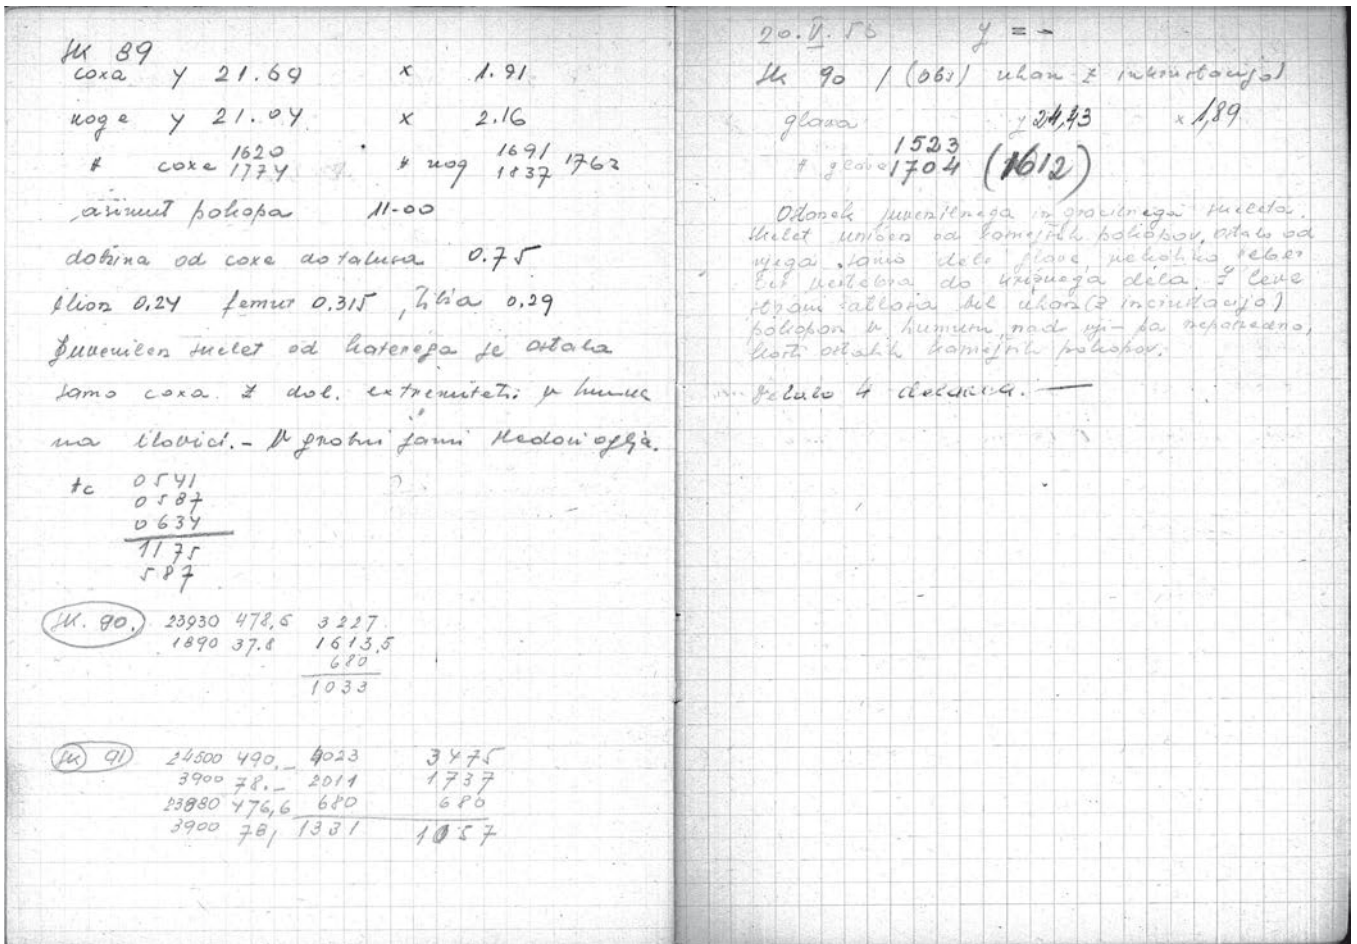 SK 89
coxa y 21.69 x 1.91
noge y 21.04 x 2.16
1620 1691
# coxe 1774 # nog 1837 1763
asimut pokopa 11-00
dolžina od coxe do talusa 0.75
ilion 0.24 femur 0.315, tibia 0.29
Juvenilen skelet od katerega je ostala
samo coxa z dol. extremitet. v humu
na ilovici. - V grobni jami sledovi oglja.
tc 0541
0587
0634
1175
587
SK. 90. 23930 478,6 3227
1890 37.8 1613,5
680
1033
SK 91 24500 490.- 4023 3475
3900 78.- 2011 1737
23830 476,6 680 680
3900 78, 1331 1057
20. V. 53 y = -
SK 90 / (obs) uhan z inkrustacijo)
glava y 24,43 x 1,89
1523
# glave 1704 (1612)
Ostanek juvenilnega in gracilnega skeleta.
Skelet uničen od kasnejših pokopov, ostalo od
njega samo deli glave, nekoliko reber
ter vertebra do križnega dela. Z leve
strani bil uhan (z incrustacijo)
pokopan v humusu, nad njim pa neposredno,
kosti ostalih kasnejših pokopov.
Delalo 4 delavca. —